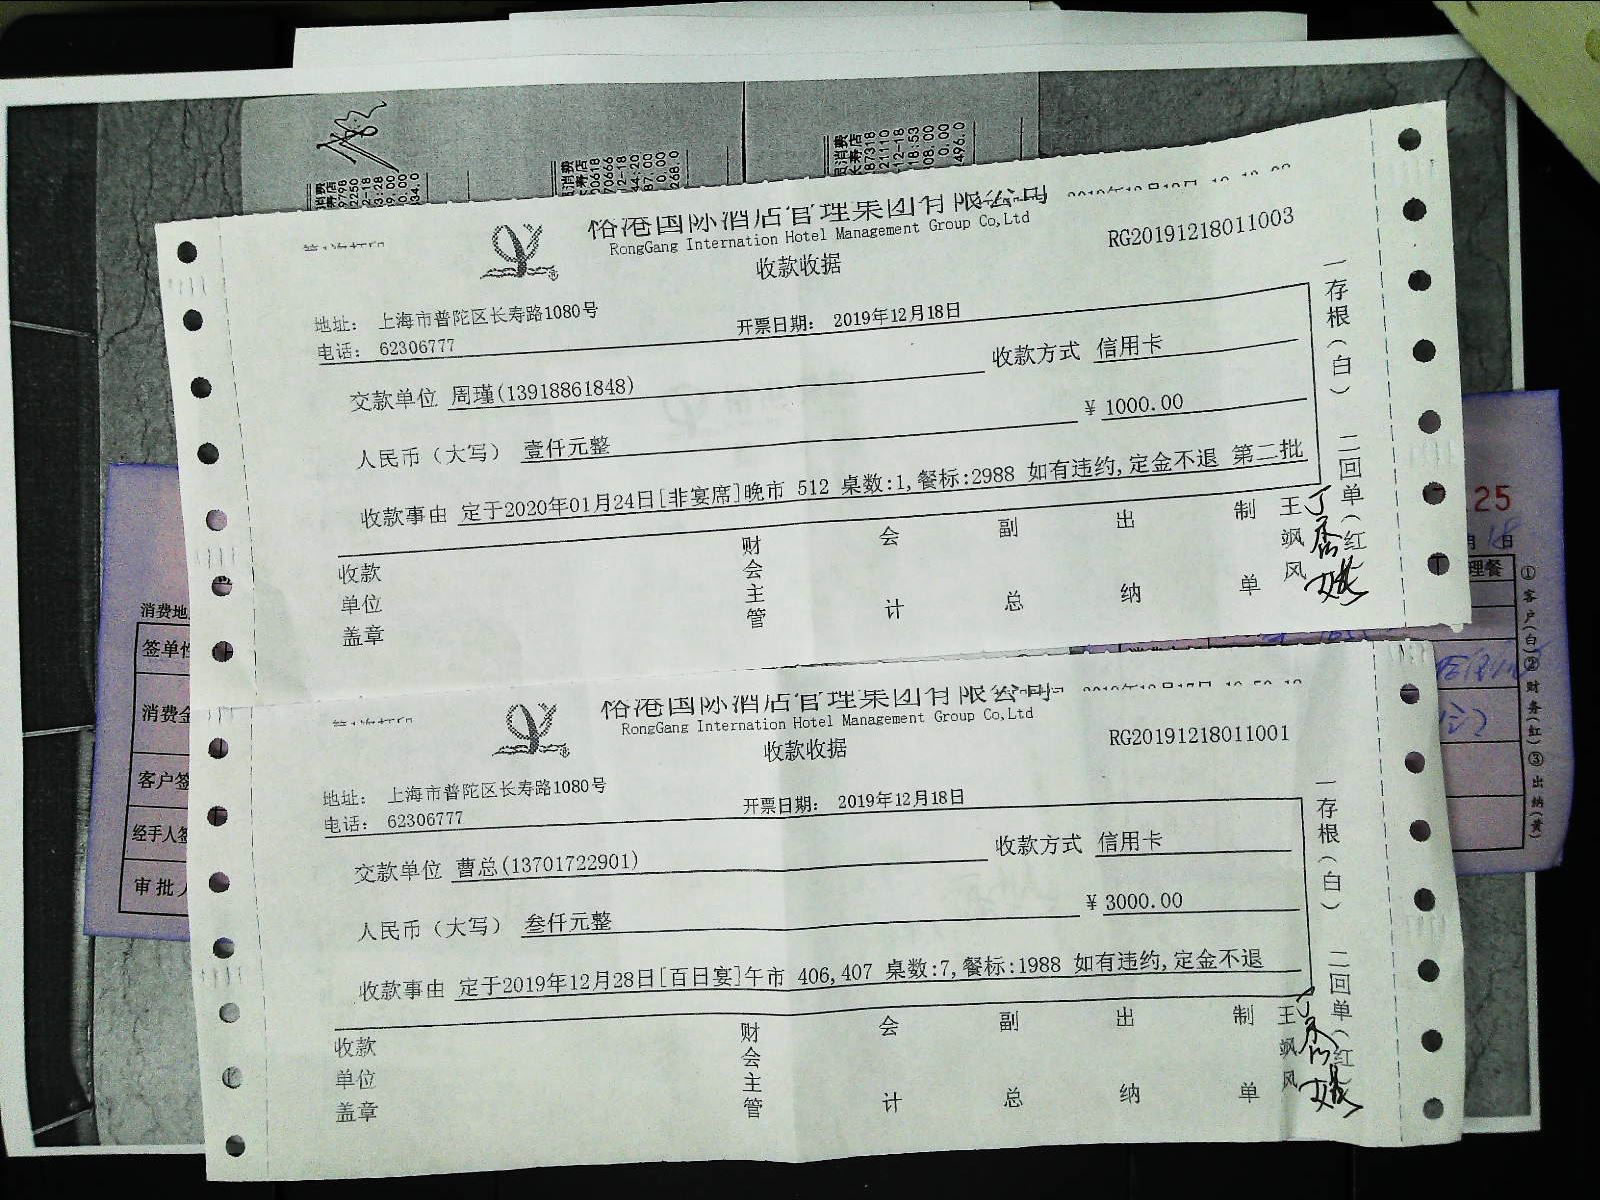 裕港国际酒店管理集团有限公司
RongGang Internation Hotel Management Group Co,Ltd
收款收据
RG20191218011003
地址： 上海市普陀区长寿路1080号
电话： 62306777
开票日期： 2019年12月18日
交款单位 周瑾(13918861848)
收款方式 信用卡
人民币（大写） 壹仟元整
¥ 1000.00
收款事由 定于2020年01月24日[非宴席]晚市 512 桌数:1,餐标:2988 如有违约,定金不退 第二批
收款单位盖章
财会主管
会计
副总
出纳
制单
王飒风
一存根（白） 二回单（红）
裕港国际酒店管理集团有限公司
RongGang Internation Hotel Management Group Co,Ltd
收款收据
RG20191218011001
地址： 上海市普陀区长寿路1080号
电话： 62306777
开票日期： 2019年12月18日
交款单位 曹总(13701722901)
收款方式 信用卡
人民币（大写） 叁仟元整
¥ 3000.00
收款事由 定于2019年12月28日[百日宴]午市 406,407 桌数:7,餐标:1988 如有违约,定金不退
收款单位盖章
财会主管
会计
副总
出纳
制单
王飒风
一存根（白） 二回单（红）
消费地
签单
消费金
客户签
经手人签
审批人
25
理餐
①客户（白）②财务（红）③出纳（黄）